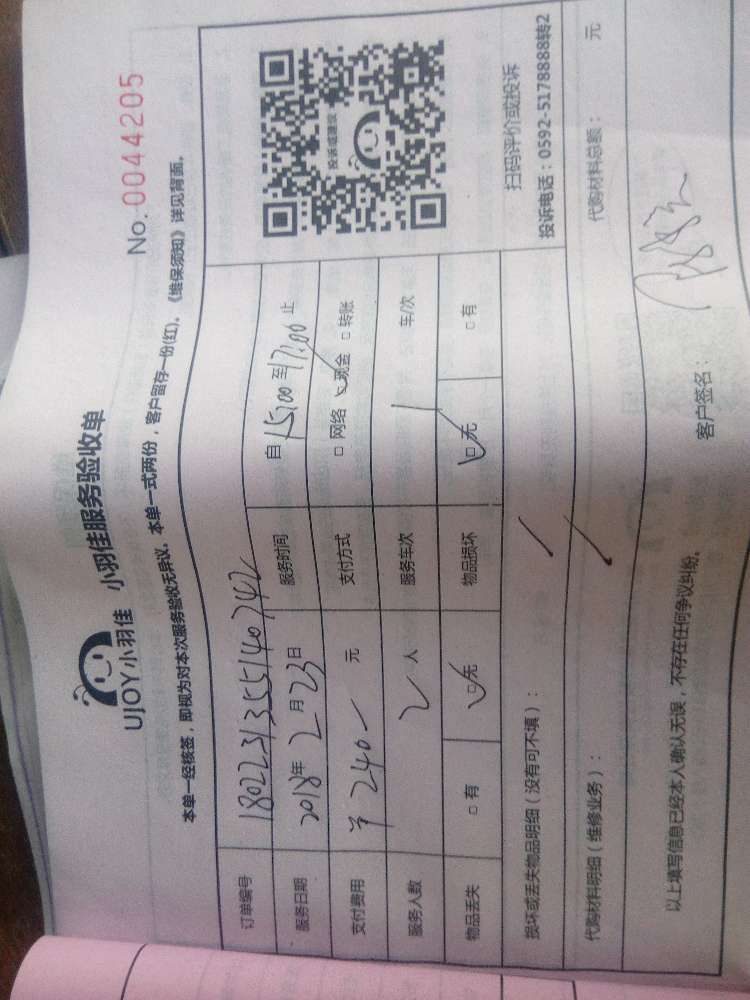 UJOY小羽佳 小羽佳服务验收单
No. 0044205
本单一经核签，即视为对本次服务验收无异议。本单一式两份，客户留存一份(红)。《维保须知》详见背面。
订单编号 18022313555140742
服务日期 2018年2月23日 服务时间 自15:00至17:00止
支付费用 ¥240 元 支付方式 □网络 ☑现金 □转账
服务人数 2人 服务车次 1 车/次
物品丢失 □有 ☑无 物品损坏 ☑无 □有
投诉或建议
扫码评价或投诉
投诉电话：0592-5178888转2
损坏或丢失物品明细（没有可不填）： /
代购材料明细（维修业务）： / 代购材料总额： 元
以上填写信息已经本人确认无误，不存在任何争议纠纷。
客户签名：